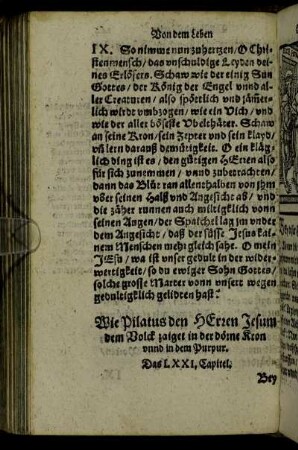 Von dem Leben
IX. So nimme nun zu hertzen / O Chri-
stenmensch / das vnschuldige Leyden dei-
nes Erlösers. Schaw wie der einig Sun
Gottes / der König der Engel vnnd al-
ler Creaturen / also spöttlich vnd jämer-
lich wirdt vmbzogen / wie ein Vich / vnd
wie der aller böseste Vbelthäter. Schaw
an seine Kron / sein Zepter vnd sein klayd /
vñ lern darauß demütigkeit. O ein kläg-
lich ding ist es / den gütigen HErren also
für sich zunemmen / vnnd zubetrachten /
dann das Blůt ran allenthalben von jhm
vber seinen Halß vnd Angesicht ab / vnd
die zäher runnen auch miltigklich vonn
seinen Augen / der Spaichel lag jm vnder
dem Angesicht / daß der süsse Jesus kai-
nem Menschen mehr gleich sahe. O mein
JEsu / wa ist vnser gedult in der wider-
wertigkeit / so du ewiger Sohn Gottes /
solche grosse Marter vonn vnsert wegen
gedultigklich gelidten hast.
Wie Pilatus den HErren Jesum
dem Volck zaiget in der dörne Kron
vnnd in dem Purpur.
Das LXXI. Capitel.
Bey